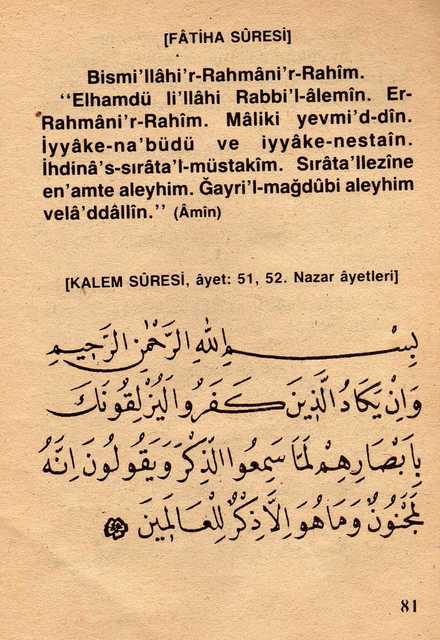 [FÂTİHA SÛRESİ]
Bismi'llâhi'r-Rahmâni'r-Rahîm.
“Elhamdü li'llâhi Rabbi'l-âlemîn. Er-
Rahmâni'r-Rahîm. Mâliki yevmi'd-dîn.
İyyâke-na'büdü ve iyyâke-nestaîn.
İhdinâ's-sırâta'l-müstakîm. Sırâta'llezîne
en'amte aleyhim. Ğayri'l-mağdûbi aleyhim
velâ'ddâllîn.” (Âmîn)
[KALEM SÛRESİ, âyet: 51, 52. Nazar âyetleri]
بِسْمِ اللهِ الرَّحْمٰنِ الرَّحِيمِ
وَاِنْ يَكَادُ الَّذِينَ كَفَرُوا لَيُزْلِقُونَكَ
بِاَبْصَارِهِمْ لَمَّا سَمِعُوا الذِّكْرَ وَيَقُولُونَ اِنَّهُ
لَمَجْنُونٌ وَمَا هُوَ اِلَّا ذِكْرٌ لِلْعَالَمِينَ
81